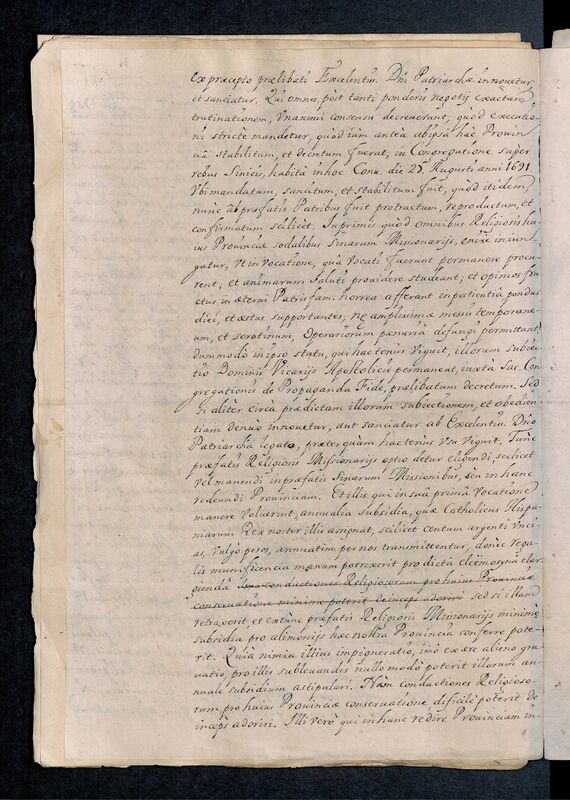 ex præcepto prælibati Excelentiss. Dñi Patriarchæ innovetur,
et sanciatur. Qui omnes, post tanti ponderis negotij exactam
trutinationem, Vnanimi consensu decreverunt, quod executio-
ni stricte mandetur, quòd iam anteà ab ipsa hac Provin-
cia stabilitum, et decretum fuerat, in Congregatione super
rebus Sinicis, habità in hoc Conv. die 25 Augusti anni 1691
Vbi mandatum, sancitum, et stabilitum fuit, quòd itidem
nunc ab præfatis Patribus fuit protractum, reproductum, et
confirmatum scilicet. Inprimis quòd omnibus Religiosis hu-
ius Provinciæ sodalibus Sinarum Missionarijs, enixe iniun-
gatur, vt in vocatione, quâ vocati fuerunt permanere procu-
rent, et animarum saluti providere studeant; et opimos fru-
ctus in æterni Patris fam. horrea afferant in patientia pondus
diei, et æstus supportantes; ne amplissimæ messis temporane-
um, et serotinum, Operariorum penuria defungi permittant,
dummodo in ipso statu, qui hactenus viguit, illorum subiec-
tio Dominis Vicarijs Apostolicis permaneat, iuxta Sac. Con-
gregationis de Propaganda Fide, prælibatum decretum. Sed
si aliter circa prædictam illorum subiectionem, et obedien-
tiam denuò innovetur, aut sanciatur ab Excelentiss. Dño
Patriarcha legato, præterquam hactenus vsu viguit. Tunc
præfatis Religiosis Missionarijs optio detur eligendi scilicet
vel manendi in præfatis Sinarum Missionibus, seu in hanc
redeundi Provinciam. Et illis qui in suâ primâ vocatione
manere voluerint, annualia subsidia, quæ Catholicus Hispa-
niarum Rex noster illis assignat, scilicet centum argenti vnci-
as, vulgo pesos, annuatim per nos transmittentur, donec rega-
lis munificencia manum porrexerit pro dicta eleemosyna elar-
gienda conductiones Religiosorum pro huius Provinciæ
conservatione minime poterit deinceps adoriri sed si illam
retraxerit, et extunc præfatis Religiosis Missionarijs minimè
subsidia pro alimonijs hæc nostra Provincia conferre pote-
rit. Quia nimia illius impignoratio, imò ex ære alieno gra-
vatio, pro illis sublevandis nullo modo poterit illorum an-
nuale subsidium astipulari. Nam conductiones Religioso-
rum pro huius Provinciæ conservatione dificile poterit de
inceps adoriri. Illi verò qui in hanc redire Provinciam in-